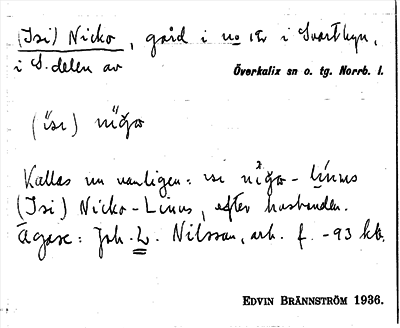 (Isi) Nicko, gård i no 12 i Svartbyn,
i S. delen av
Överkalix sn o. tg. Norrb. l.
Kallas nu vanligen: isi - línus
(Isi) Nicko-Linus, efter husbonden.
Ägare: Joh. L. Nilsson, arb. f. -93 här.
EDVIN BRÄNNSTRÖM 1936.